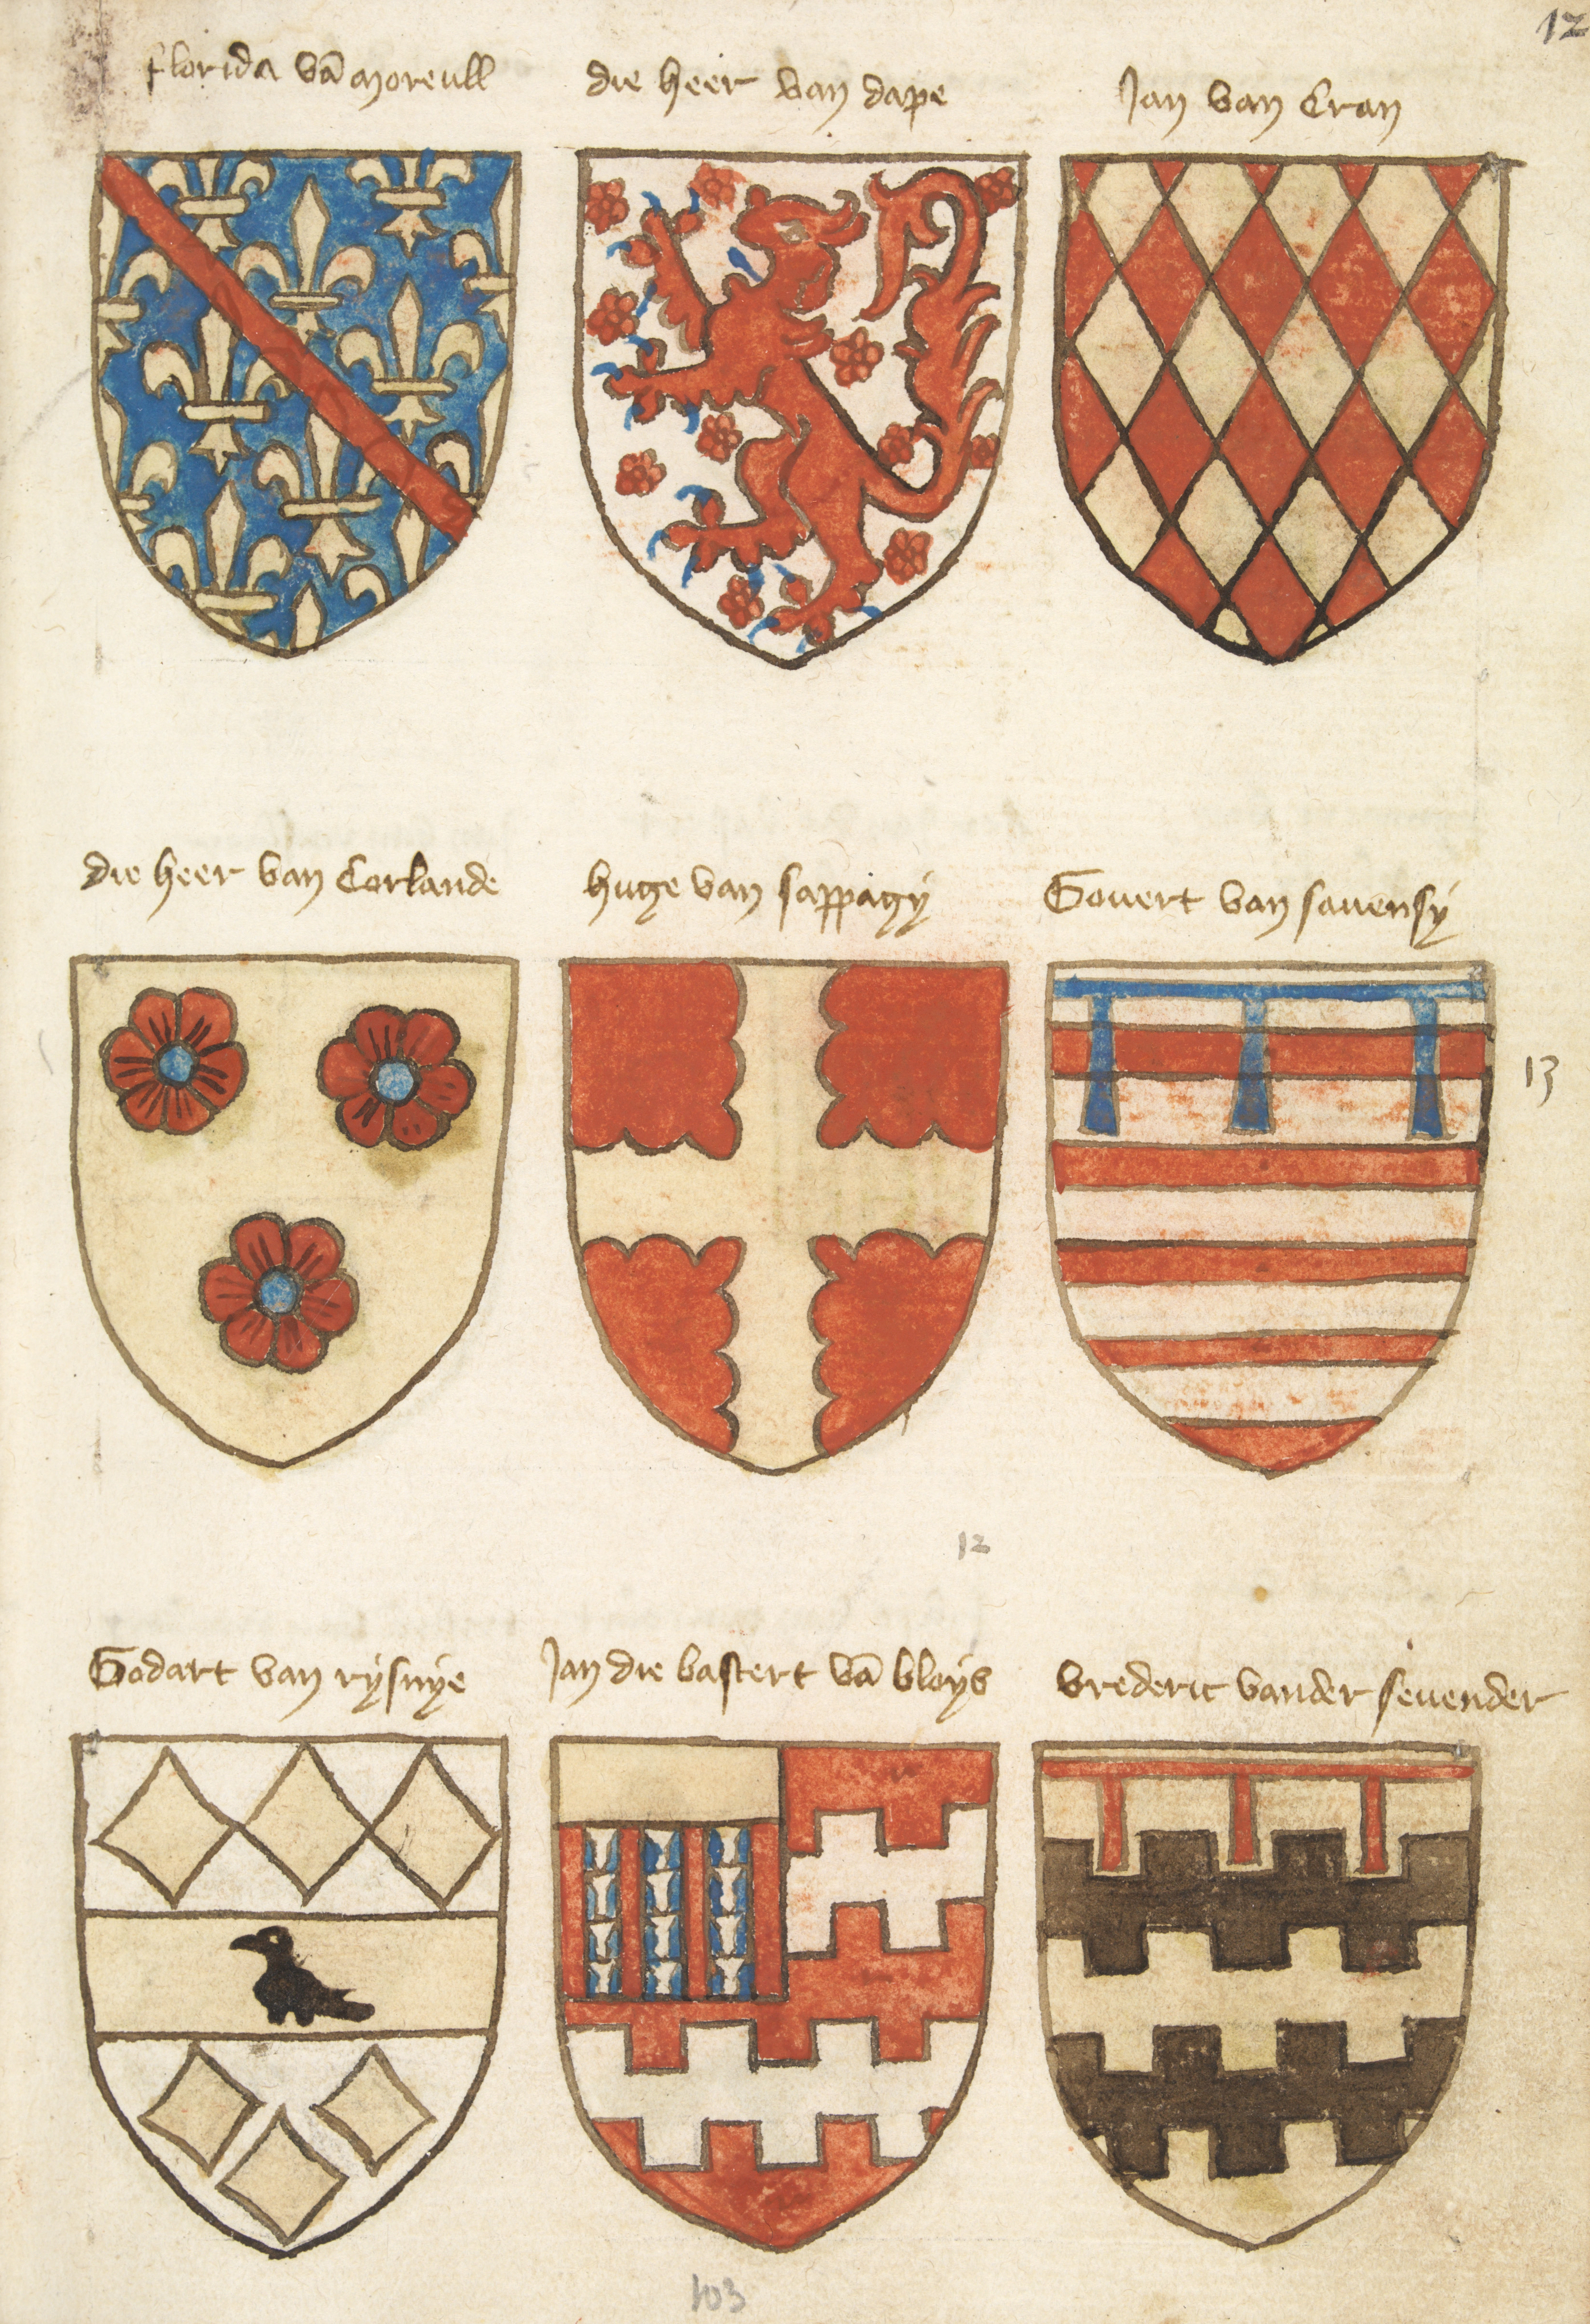 12
florida vā moreull
die heer van dape
Jan van Cran
die heer van Corlande
huge van sappagÿ
Govert van savensÿ
13
12
Godart van rÿsnÿe
Jan die bastert vā bloÿs
vrederic vander sevender
103